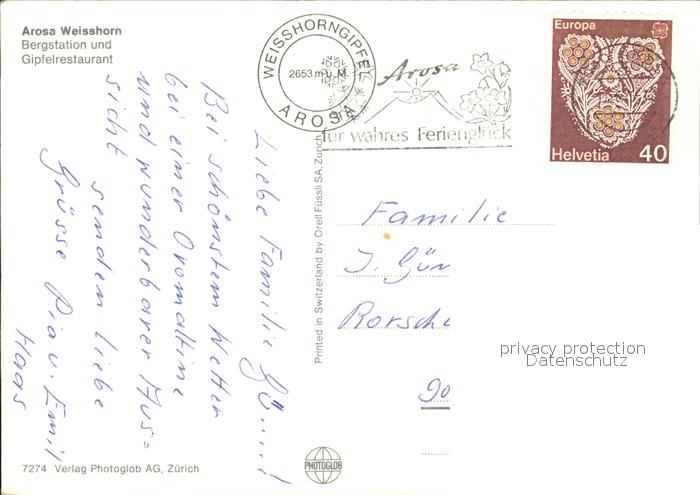 Arosa Weisshorn
Bergstation und
Gipfelrestaurant
WEISSHORNGIPFEL
2653 m ü. M.
AROSA
Arosa
für wahres Ferienglück
Europa
Helvetia 40
Liebe Familie Gü....!
Bei schönstem Wetter
bei einer Ovomaltine
und wunderbarer Aus=
sicht
senden liebe
Grüsse Pia u. Emil
Haas
Printed in Switzerland by Orell Füssli SA, Zurich
Familie
J. Gün
Rorsch
90
privacy protection
Datenschutz
7274 Verlag Photoglob AG, Zürich
PHOTOGLOB